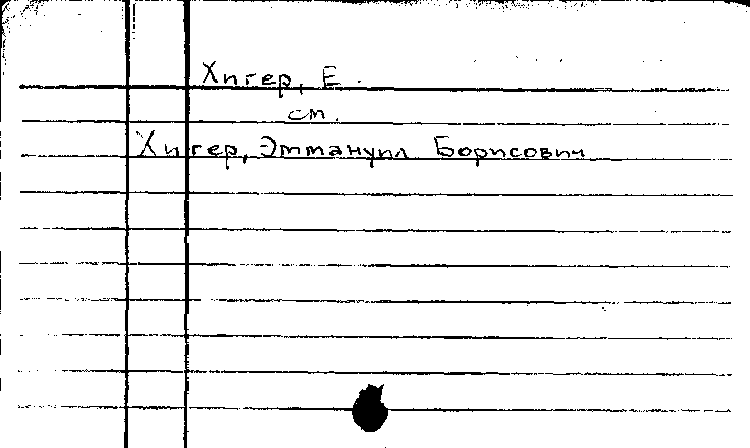 Хигер, Е.
см.
Хигер, Эммануил Борисович